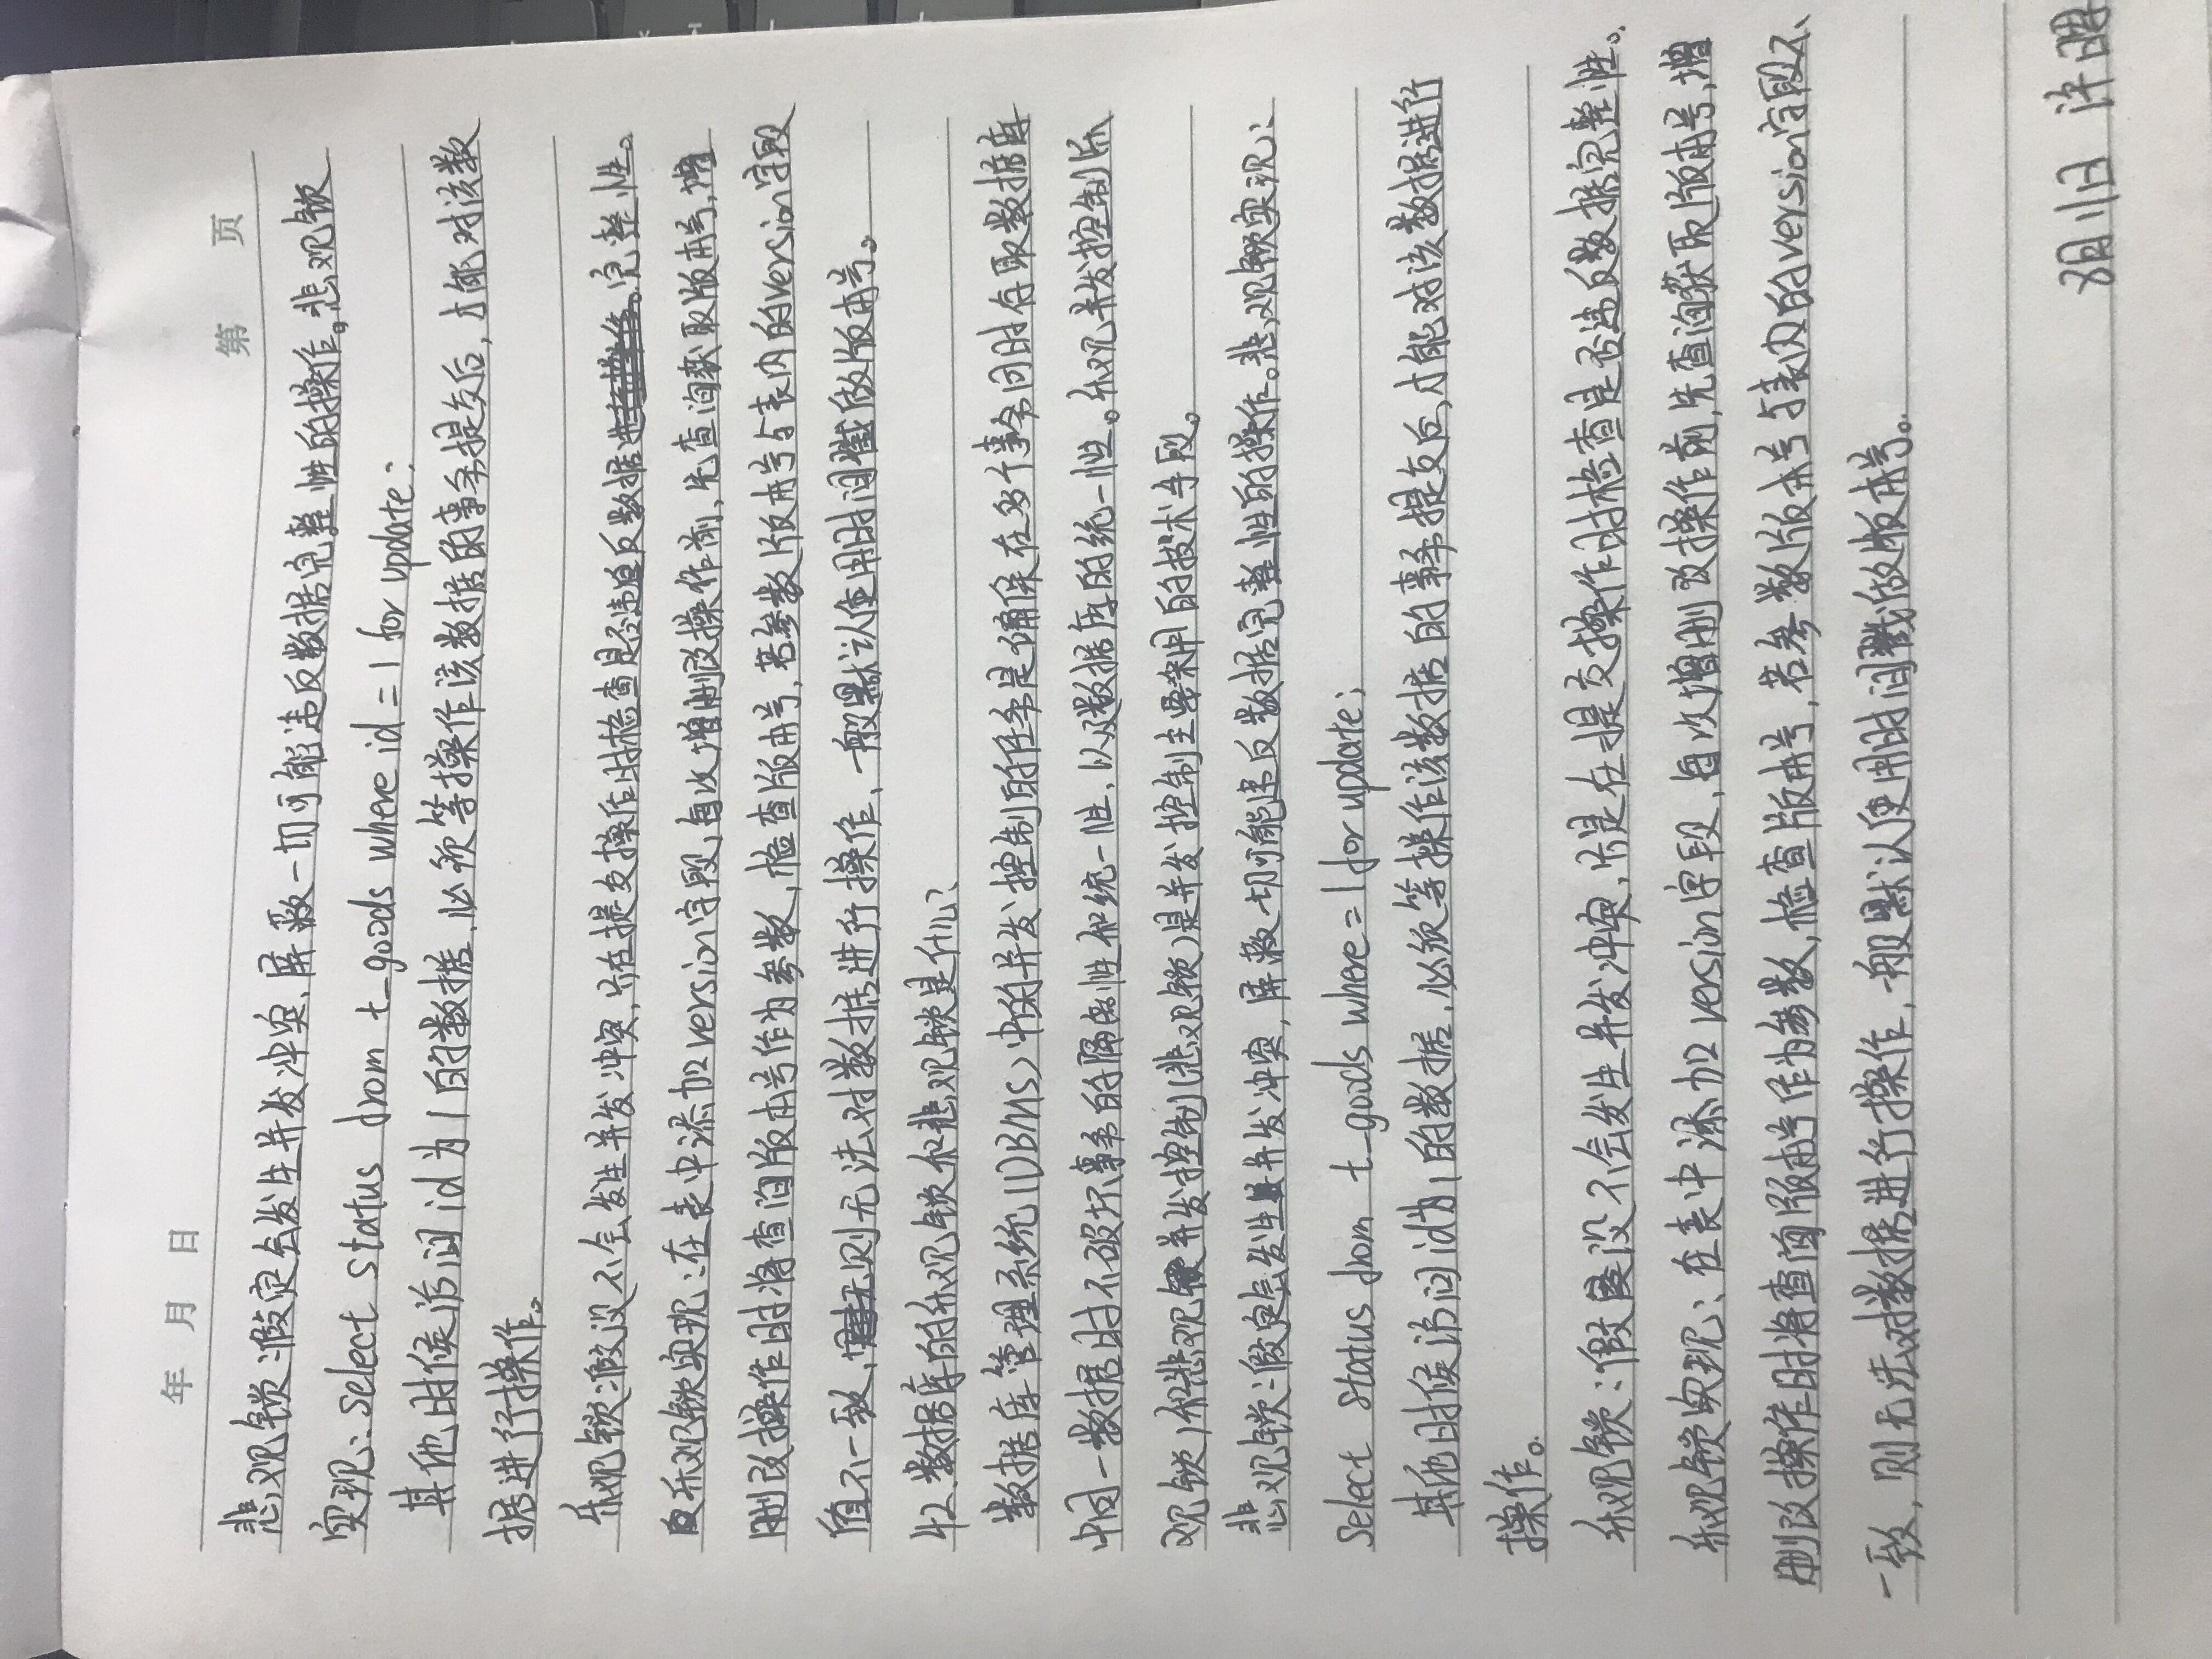 年 月 日
第 页
悲观锁:假定会发生并发冲突,屏蔽一切可能违反数据完整性的操作。悲观锁
实现:select status from t_goods where id = 1 for update;
其他时候访问id为1的数据,必须等操作该数据的事务提交后,才能对该数
据进行操作。
乐观锁:假设不会发生并发冲突,只在提交操作时检查是否违反数据完整性。
乐观锁实现:在表中添加version字段,每次增删改操作前,先查询获取版本号,增
删改操作时将查询版本号作为参数,检查版本号,若参数版本号与表内的version字段
值不一致,则无法对数据进行操作,一般默认使用时间戳做版本号。
42.数据库的乐观锁和悲观锁是什么?
数据库管理系统(DBMS)中的并发控制的任务是确保在多个事务同时存取数据库
中同一数据时不破坏事务的隔离性和统一性,以及数据库的统一性。乐观并发控制(乐
观锁)和悲观并发控制(悲观锁)是并发控制主要采用的技术手段。
悲观锁:假定会发生并发冲突,屏蔽一切可能违反数据完整性的操作。悲观锁实现:
select status from t_goods where = 1 for update;
其他时候访问id为1的数据,必须等操作该数据的事务提交后,才能对该数据进行
操作。
乐观锁:假设不会发生并发冲突,只是在提交操作时检查是否违反数据完整性。
乐观锁实现:在表中添加version字段,每次增删改操作前,先查询获取版本号,增
删改操作时将查询版本号作为参数,检查版本号,若参数版本号与表内的version字段不
一致,则无法对数据进行操作,一般默认使用时间戳做版本号。
8月11日 许